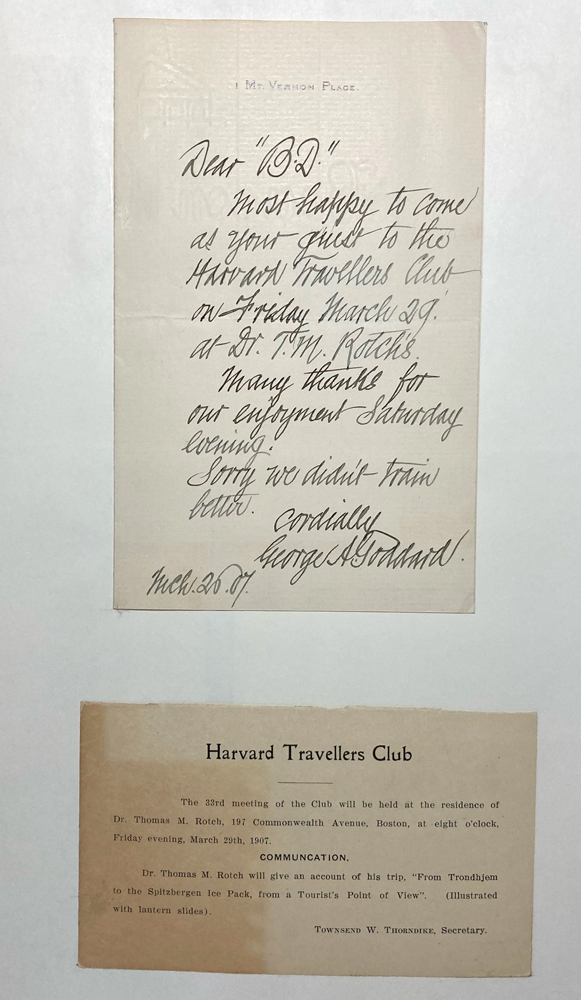 1 Mt. Vernon Place.
Dear "B.D."
Most happy to come
as your guest to the
Harvard Travellers Club
on Friday March 29.
at Dr. T. M. Rotch's.
Many thanks for
our enjoyment Saturday
evening.
Sorry we didn't train
better.
Cordially
George A Goddard.
Mch. 26. 07.
Harvard Travellers Club
The 33rd meeting of the Club will be held at the residence of
Dr. Thomas M. Rotch, 197 Commonwealth Avenue, Boston, at eight o'clock,
Friday evening, March 29th, 1907.
COMMUNCATION.
Dr. Thomas M. Rotch will give an account of his trip, "From Trondhjem
to the Spitzbergen Ice Pack, from a Tourist's Point of View". (Illustrated
with lantern slides).
Townsend W. Thorndike, Secretary.